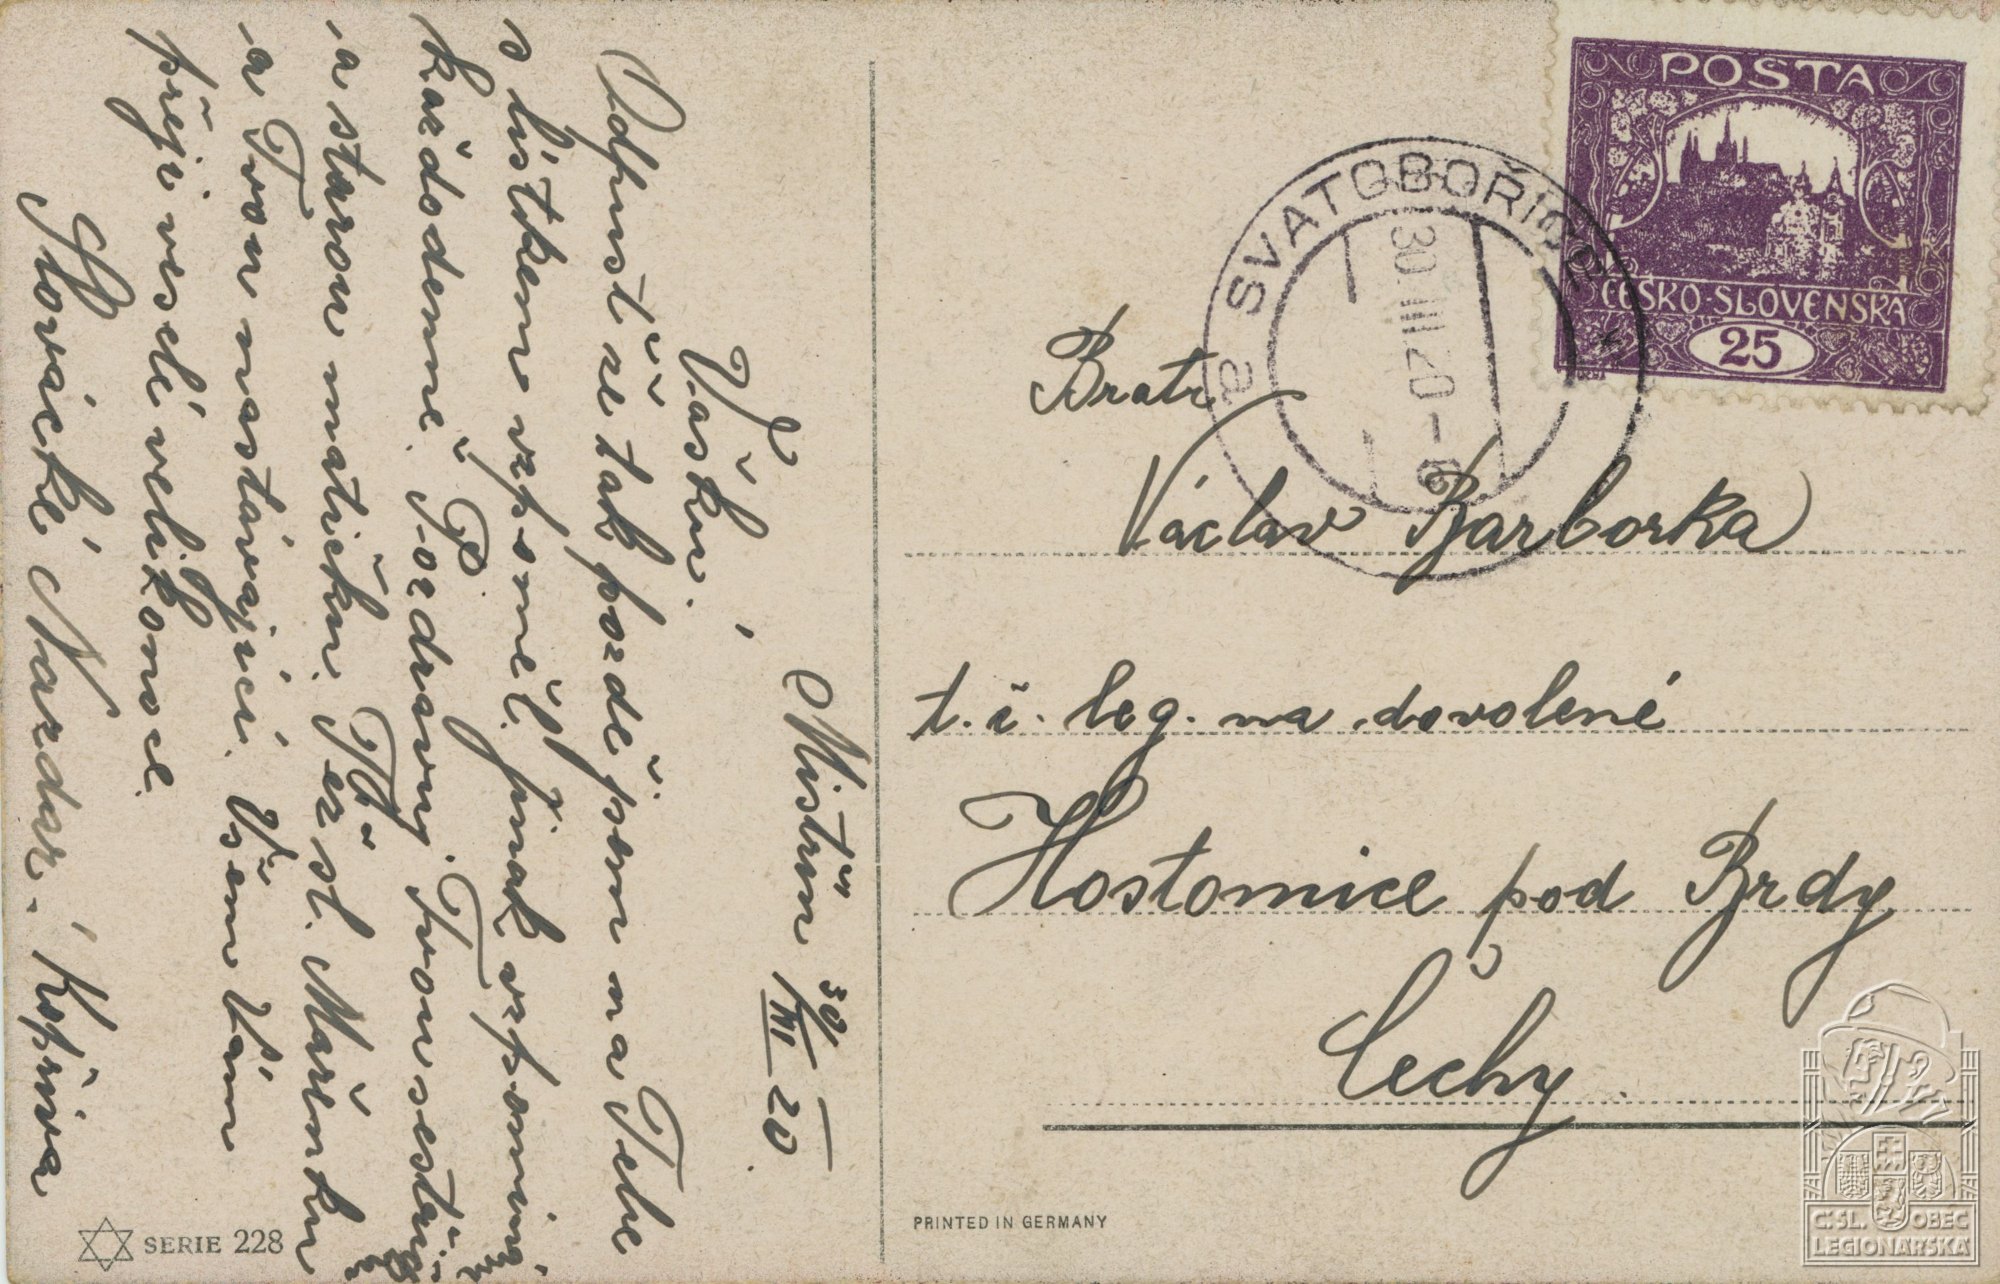 Mistřín 30/III 20.
Vašku!
Odpusť že tak pozdě jsem na Tebe
s lístkem vzpoměl, jinak vzpomínám
každodenně. Pozdravuj Tvou sestřičku
a starou matičku. Též sl. Mařenku
a Tvou nastávající. Všem Vám
přeji veselé velikonoce.
Slovácké Nazdar! Kopřiva
SERIE 228
POSTA
ČESKO-SLOVENSKÁ
25
SVATOBOŘICE
a
30.III.20-6
Bratr
Václav Barborka
t. č. leg. na dovolené
Hostomice pod Brdy
Čechy.
PRINTED IN GERMANY
Č. SL. OBEC
LEGIONÁŘSKÁ